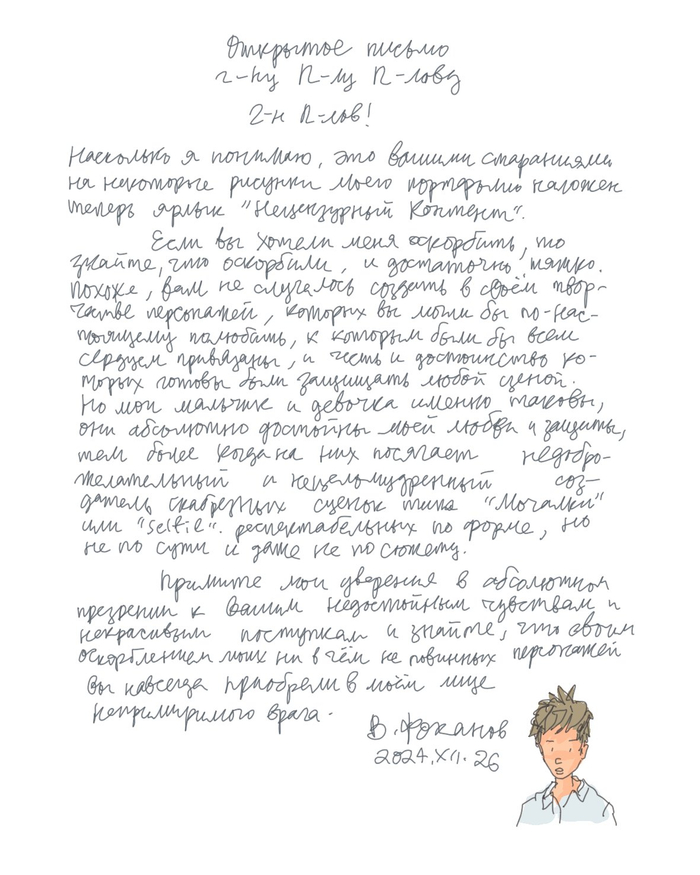 Открытое письмо
г-ну П-лу П-лову
Г-н П-лов!
Насколько я понимаю, это вашими стараниями
на некоторые рисунки моего портфолио наложен
теперь ярлык "Нецензурный Контент".
Если вы хотели меня оскорбить, то
знайте, что оскорбили, и достаточно тяжко.
Похоже, вам не случалось создать в своём твор-
честве персонажей, которых вы могли бы по-нас-
тоящему полюбить, к которым были бы всем
сердцем привязаны, и честь и достоинство ко-
торых готовы были защищать любой ценой.
Но мои мальчик и девочка именно таковы,
они абсолютно достойны моей любви и защиты,
тем более когда на них посягает недобро-
желательный и нецеломудренный соз-
датель скабрезных сценок типа "Мочалки"
или "Selfie". респектабельных по форме, но
не по сути и даже не по сюжету.
Примите мои уверения в абсолютном
презрении к Вашим недостойным чувствам и
некрасивым поступкам и знайте, что своим
оскорблением моих ни в чём не повинных персонажей
вы навсегда приобрели в моём лице
непримиримого врага.
В. Фоканов
2024.XII.26